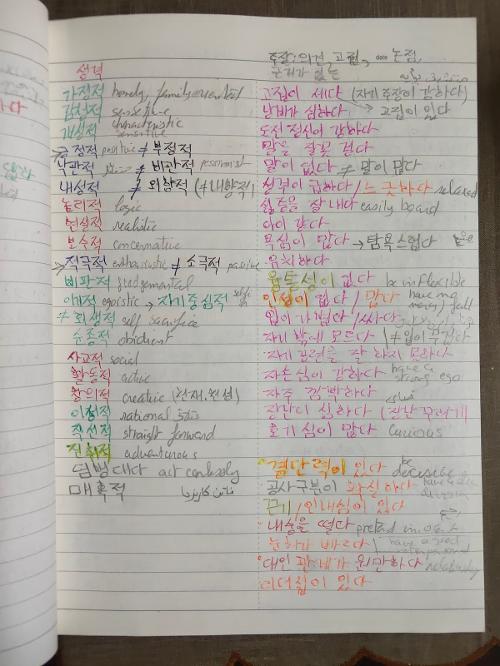 성격
가정적 homely, family oriented
감정적 sensitive
개성적 characteristic
sensitive
긍정적 positive ≠ 부정적
낙관적 ≠ 비관적 pessimist
내성적 ≠ 외향적 (≠내향적)
논리적 logic
현실적 realistic
보수적 concervative
적극적 enthusiastic ≠ 소극적 passive
비판적 judgemental
이기적 egoistic → 자기중심적
≠ 희생적 self sacrifice
순종적 obidient
사교적 social
활동적 active
창의적 creative (천재, 천성)
이성적 rational
직선적 straight forward
진취적 adventurous
덤벙대다 act carelessly
매혹적
주장: 의견, 고집, 논점,
근거가 있는
고집이 세다 (자기 주장이 강하다)
낭비가 심하다 → 고집이 있다
도전 정신이 강하다
말을 잘못 걸다
말이 없다 ≠ 말이 많다
성격이 급하다 / 느긋하다 relaxed
싫증을 잘 내다 easily board
욕심이 많다 → 탐욕스럽다
유치하다
융통성이 없다 be inflexible
인정이 없다 / 많다
입이 가볍다 / 싸다
자기밖에 모르다 (≠ 입이 무겁다
자기 관리를 잘 하지 못하다
자존심이 강하다 have a strong ego
자주 깜빡하다
장난이 심하다 (장난꾸러기)
호기심이 많다 curious
결단력이 있다 be decisive
공사구분이 확실하다
끈기/인내심이 있다
내숭을 떨다 pretend innocent
눈치가 빠르다
대인 관계가 원만하다
리더십이 있다